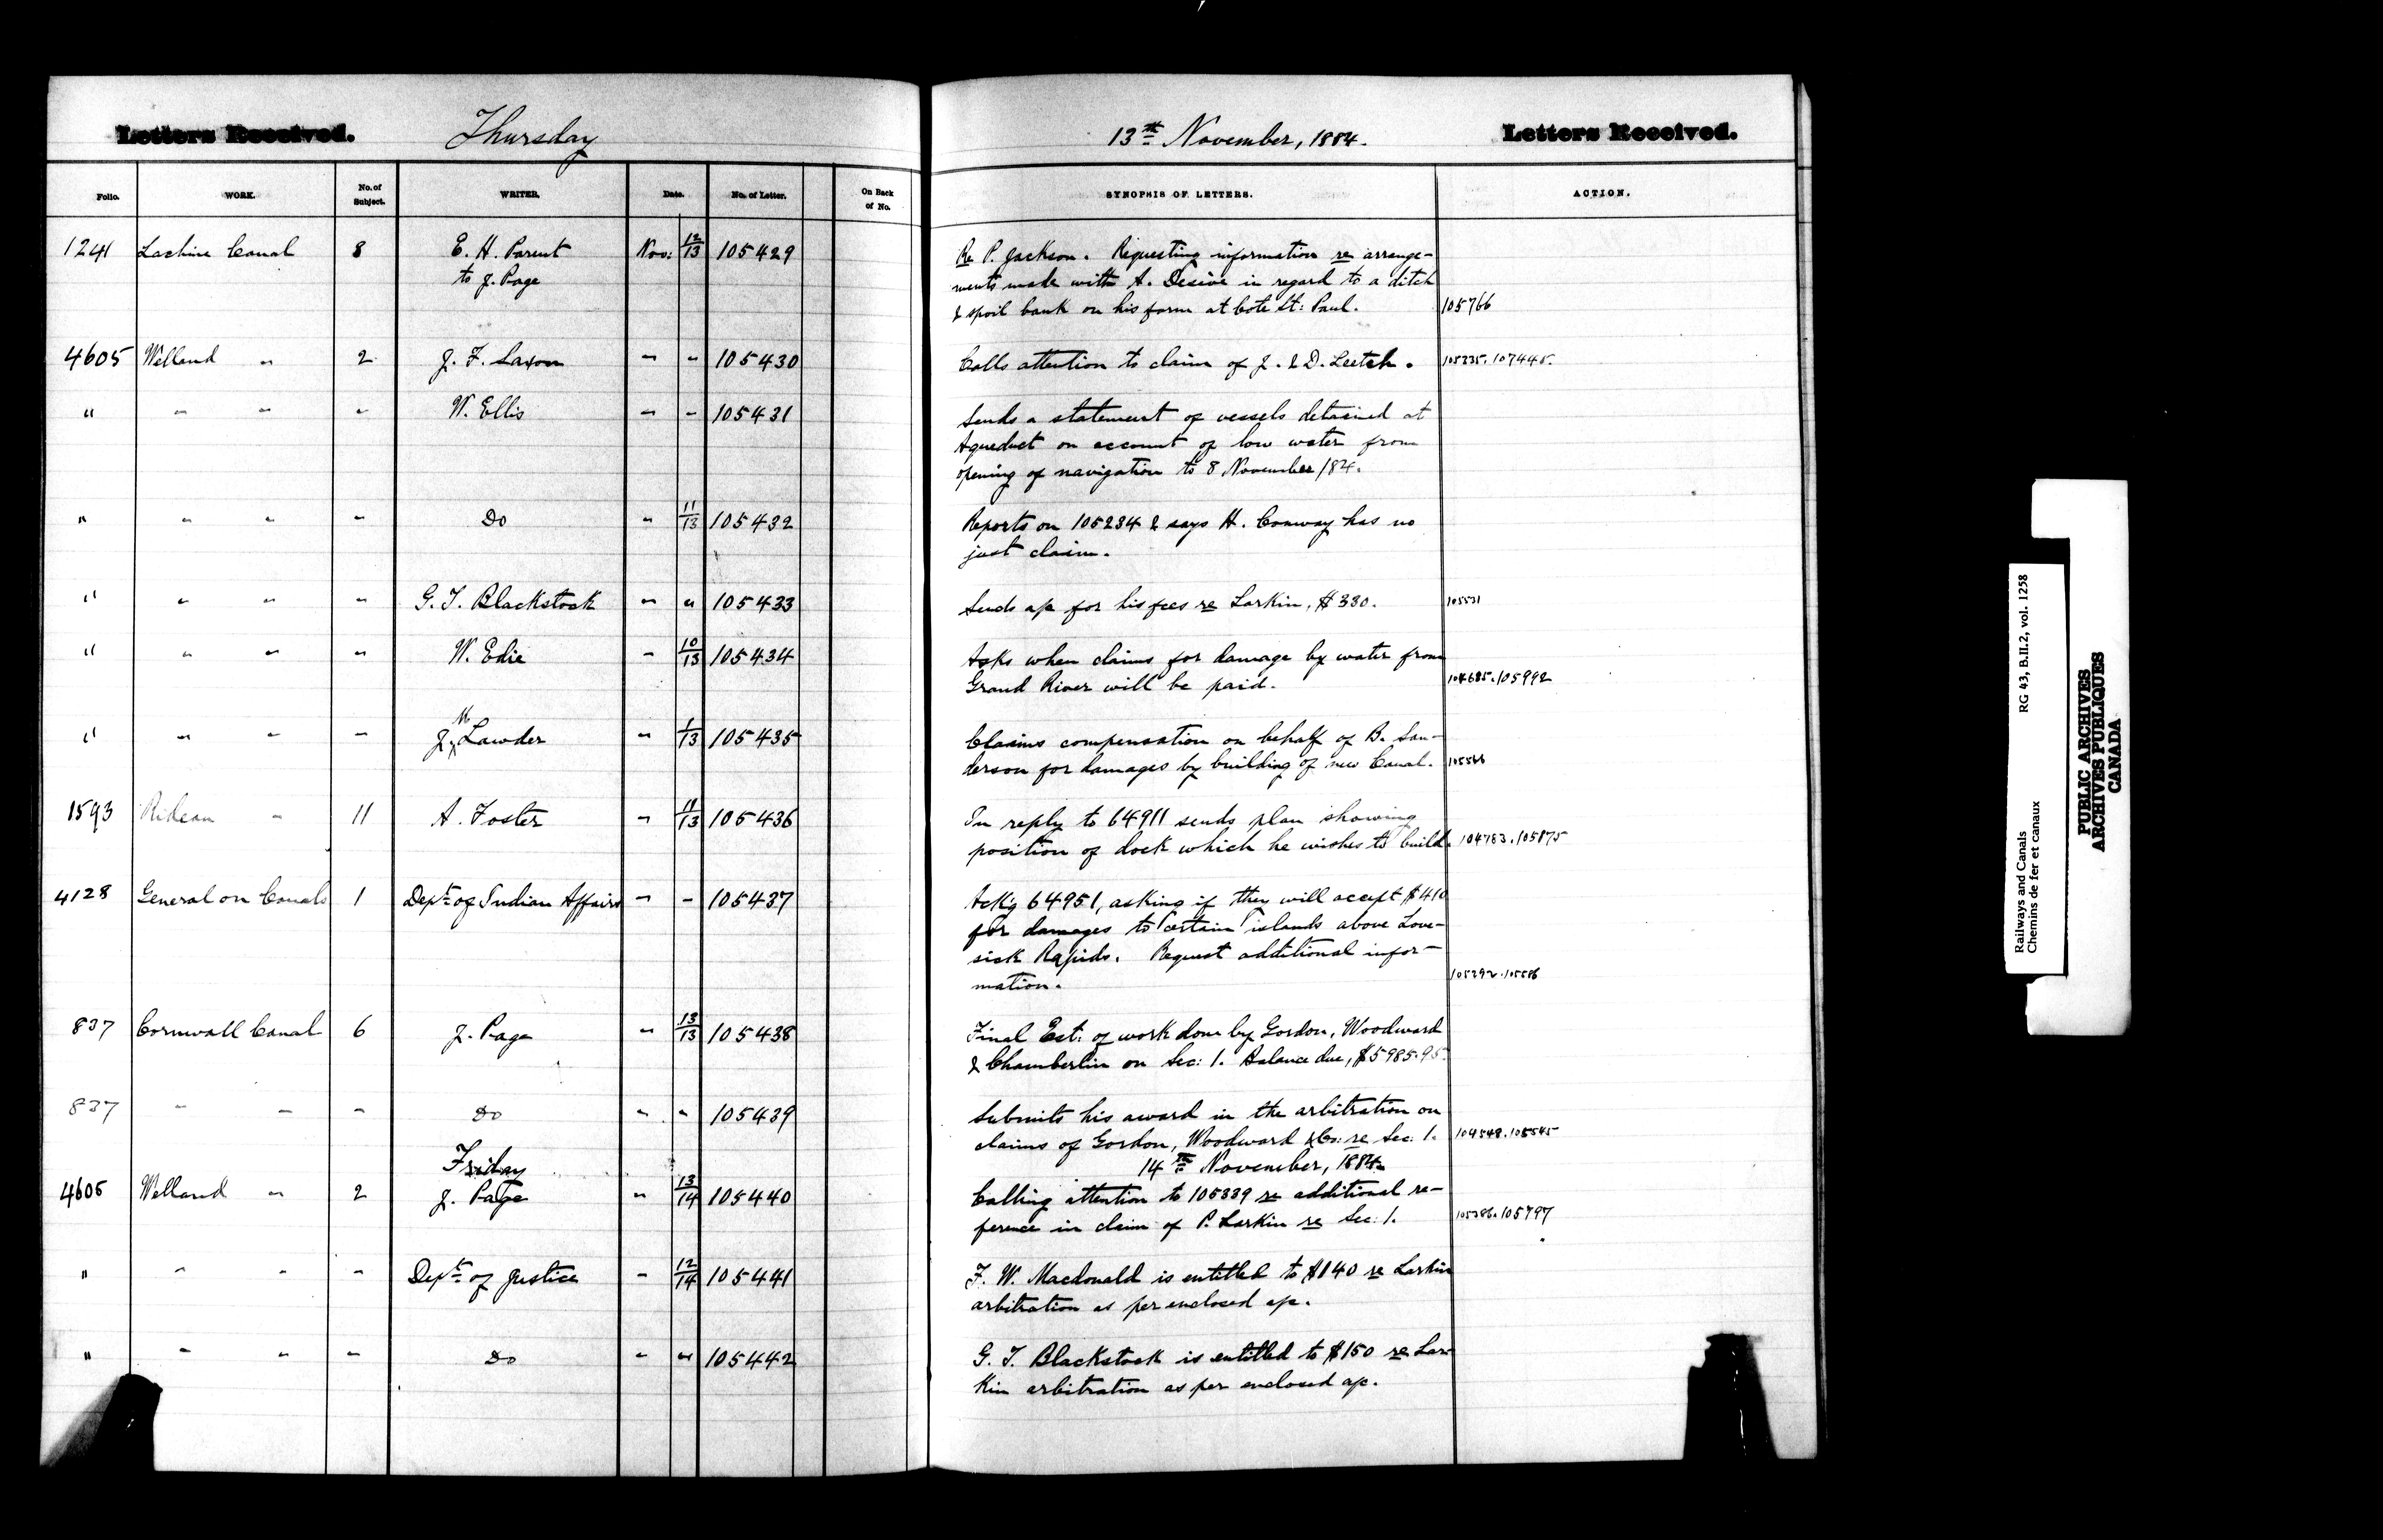 Letters Received. Thursday 13th November, 1884. Letters Received.
Folio. WORK. No. of Subject. WRITER. Date. No. of Letter. On Back of No. SYNOPSIS OF LETTERS. ACTION.
1241 Lachine Canal 8 E. H. Parent Nov: 12/13 105429 Re P. Jackson. Requesting information re arrange-
to J. Page ments made with A. in regard to a ditch
& spoil bank on his farm at Cote St: Paul. 105766
4605 Welland " 2 J. F. Saxon " " 105430 Calls attention to claim of J. & D. Leetch. 105235. 107445.
" " " " W. Ellis " " 105431 Sends a statement of vessels detained at
Aqueduct on account of low water from
opening of navigation to 8 November /84.
" " " " Do " 11/13 105432 Reports on 105234 & says H. Conway has no
just claim.
" " " " G. T. Blackstock " " 105433 Sends a/c for his fees re Larkin, $330. 105531
" " " " W. Edie " 10/13 105434 Asks when claims for damage by water from
Grand River will be paid. 104685. 105992
" " " " J. M. Lawder " 1/13 105435 Claims compensation on behalf of B. San-
derson for damages by building of new Canal.
1593 Rideau " 11 A. Foster " 11/13 105436 In reply to 64911 sends plan showing
position of dock which he wishes to build. 104783. 105875
4128 General on Canals 1 Dept of Indian Affairs " " 105437 Ackg 64951, asking if they will accept $410
for damages to certain islands above Love-
sick Rapids. Request additional infor-
mation. 105292. 105586
837 Cornwall Canal 6 J. Page " 13/13 105438 Final Est: of work done by Gordon, Woodward
& Chamberlin on Sec: 1. Balance due, $5985.95.
837 " " " Do " " 105439 Submits his award in the arbitration on
claims of Gordon, Woodward & Co: re Sec: 1. 104548. 105545
Friday 14th November, 1884.
4605 Welland " 2 J. Page " 13/14 105440 Calling attention to 105339 re additional re-
ference in claim of P. Larkin re Sec: 1. 105386. 105797
" " " " Dept of Justice " 12/14 105441 F. W. Macdonald is entitled to $140 re Larkin
arbitration as per enclosed a/c.
" " " " Do " " 105442 G. T. Blackstock is entitled to $150 re Lar-
kin arbitration as per enclosed a/c.
Railways and Canals RG 43, B.II.2, vol. 1258
Chemins de fer et canaux
PUBLIC ARCHIVES
ARCHIVES PUBLIQUES
CANADA